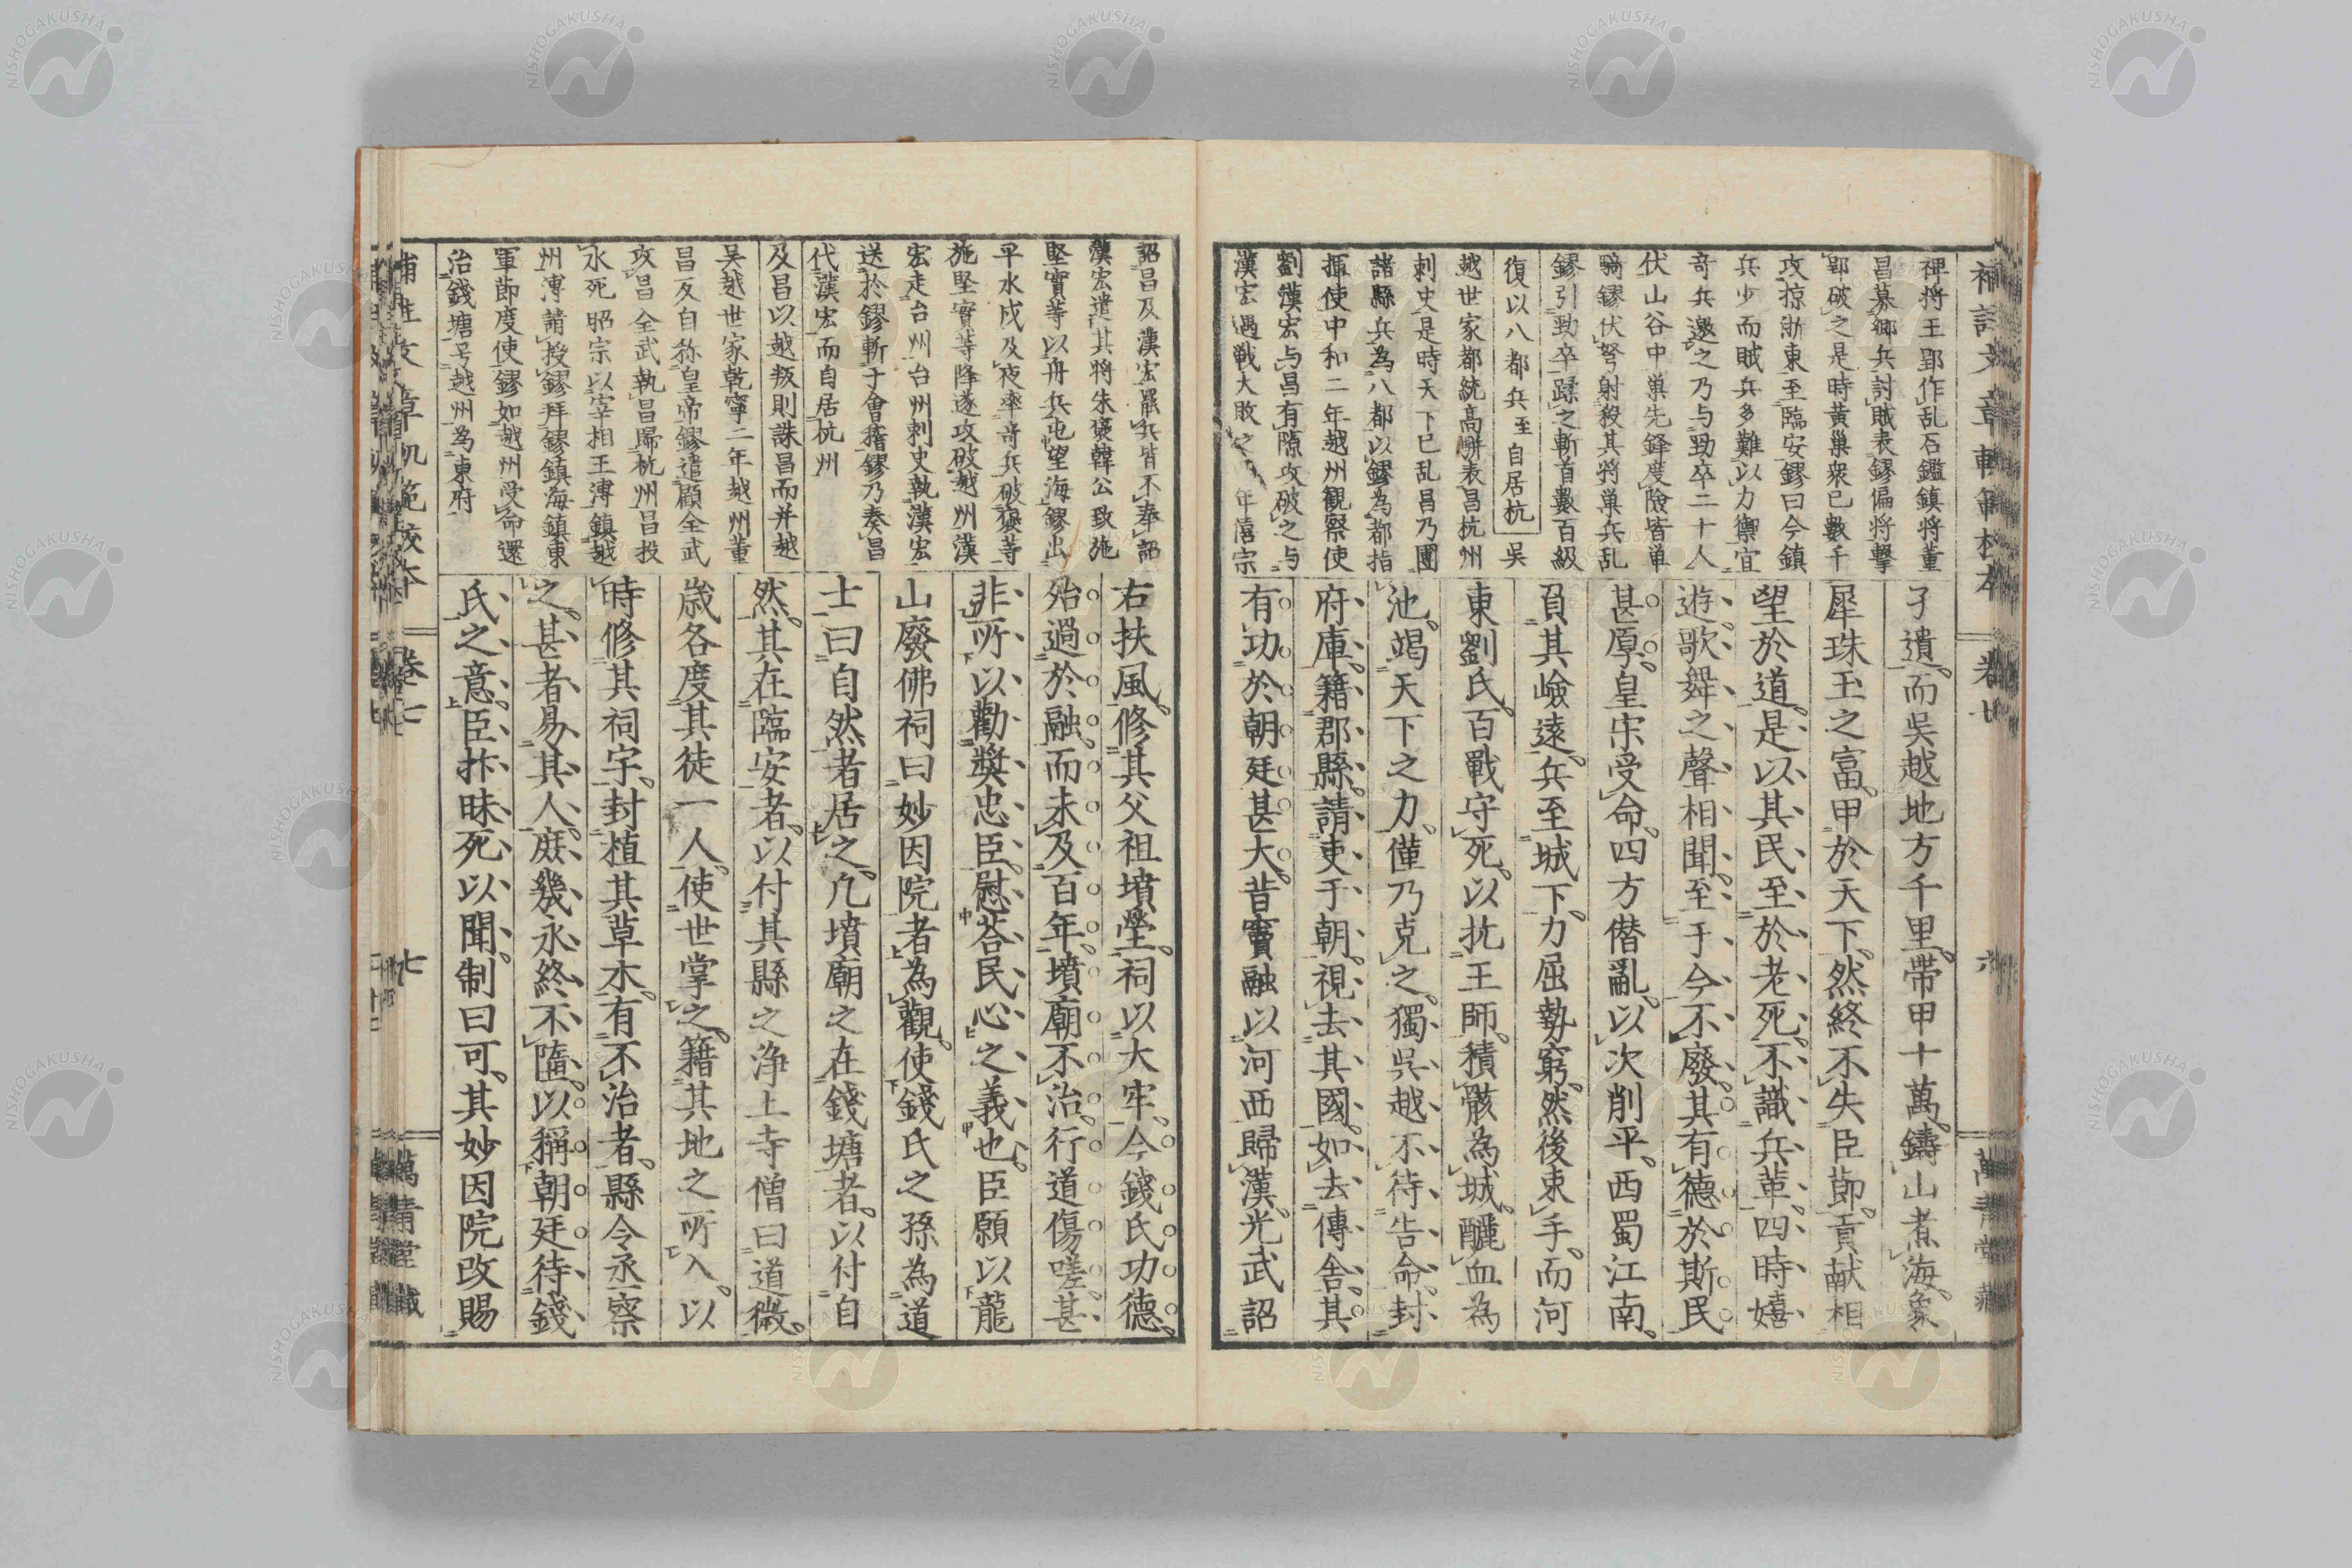 裨将王郢作乱石鑑鎮将董
昌募郷兵討賊表鏐偏将撃
郢破之是時黄巢衆已數千
攻掠浙東至臨安鏐曰今鎮
兵少而賊兵多難以力禦宜
竒兵邀之乃与勁卒二十人
伏山谷中巢先鋒度險皆単
騎鏐伏弩射殺其将巢兵乱
鏐引勁卒蹂之斬首數百級
復以八都兵至自居杭 吳
越世家都統高駢表昌杭州
刺史是時天下已乱昌乃團
諸縣兵為八都以鏐為都指
揮使中和二年越州観察使
劉漢宏与昌有隙攻破之与
漢宏遇戦大敗之 年僖宗
孑遺而吳越地方千里帶甲十萬鑄山煮海象
犀珠玉之富甲於天下然終不失臣節貢献相
望於道是以其民至於老死不識兵革四時嬉
遊歌舞之聲相聞至于今不廢其有德於斯民
甚厚皇宋受命四方僭亂以次削平西蜀江南
負其嶮遠兵至城下力屈勢窮然後束手而河
東劉氏百戰守死以抗王師積骸為城釃血為
池竭天下之力僅乃克之獨吳越不待告命封
府庫籍郡縣請吏于朝視去其國如去傳舎其
有功於朝廷甚大昔竇融以河西歸漢光武詔
詔昌及漢宏罷兵皆不奉詔
漢宏遣其将朱褒韓公致施
堅實等以舟兵屯望海鏐出
平水戍及夜率竒兵破褒等
施堅實等降遂攻破越州漢
宏走台州台州刺史執漢宏
送於鏐斬于會稽鏐乃奏昌
代漢宏而自居杭州
及昌以越叛則誅昌而并越
吳越世家乾寧二年越州董
昌反自称皇帝鏐遣顧全武
攻昌全武執昌歸杭州昌投
水死昭宗以宰相王溥鎮越
州溥請授鏐拜鏐鎮海鎮東
軍節度使鏐如越州受命還
治錢塘号越州為東府
右扶風修其父祖墳塋祠以大牢今錢氏功德
殆過於融而未及百年墳廟不治行道傷嗟甚
非所以勸奬忠臣慰荅民心之義也臣願以龍
山廢佛祠曰妙因院者為觀使錢氏之孫為道
士曰自然者居之凢墳廟之在錢塘者以付自
然其在臨安者以付其縣之浄土寺僧曰道微
歳各度其徒一人使世掌之籍其地之所入以
時修其祠宇封植其草木有不治者縣令丞察
之甚者易其人庶幾永終不墮以稱朝廷待錢
氏之意臣抃昧死以聞制曰可其妙因院改賜
卷七 七
NISHOGAKUSHA